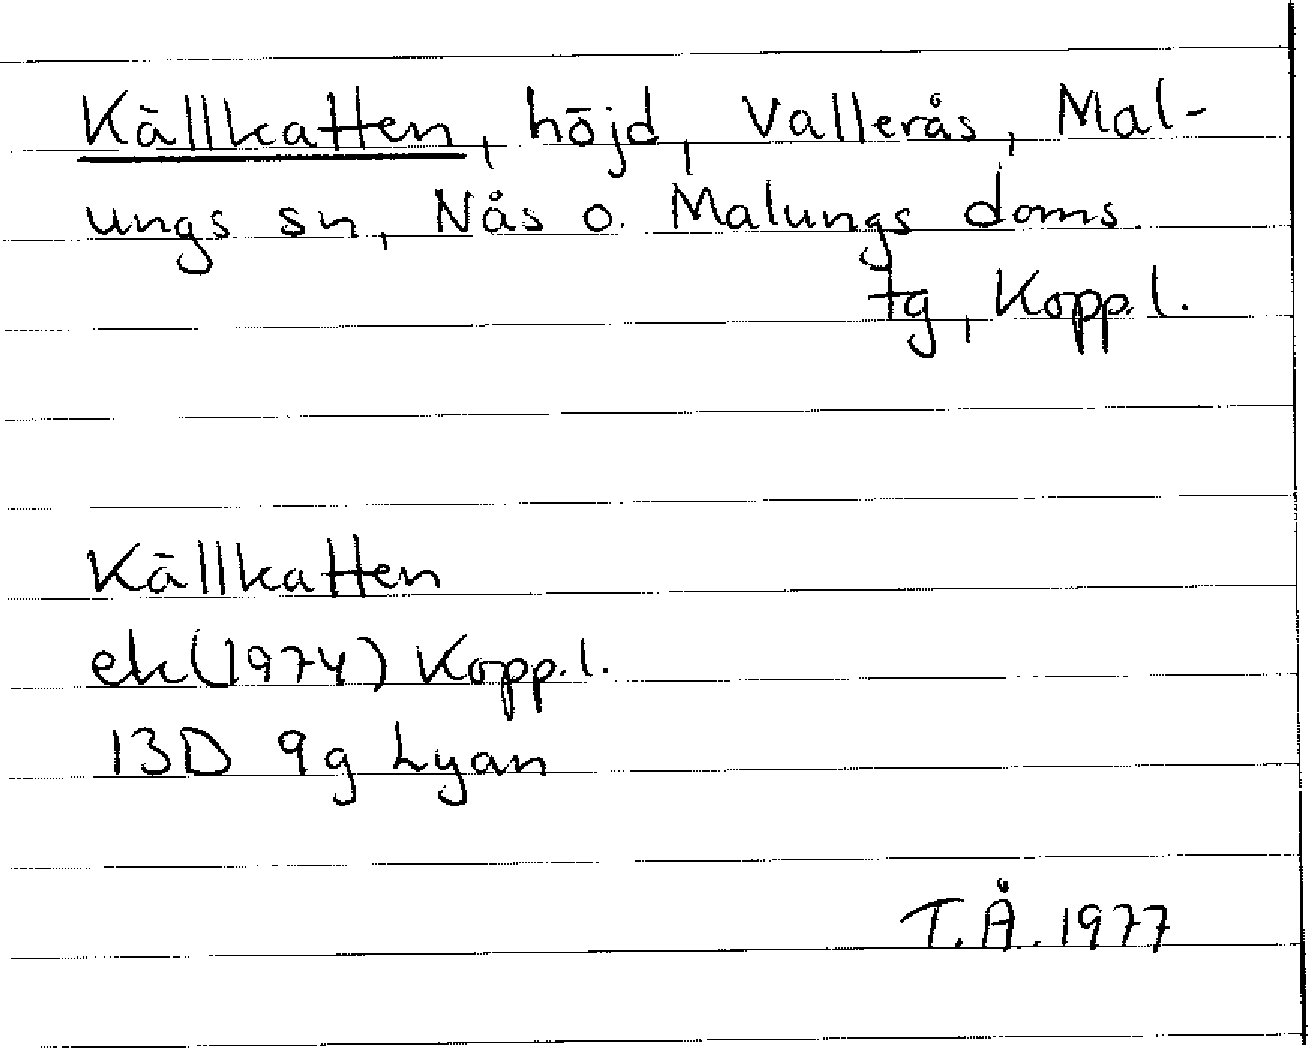 Källkatten, höjd, Vallerås, Mal-
ungs sn, Nås o. Malungs doms
tg, Kopp.l.
Källkatten
ek(1974) Kopp.l.
13D 9g Lyan
T.Å. 1977